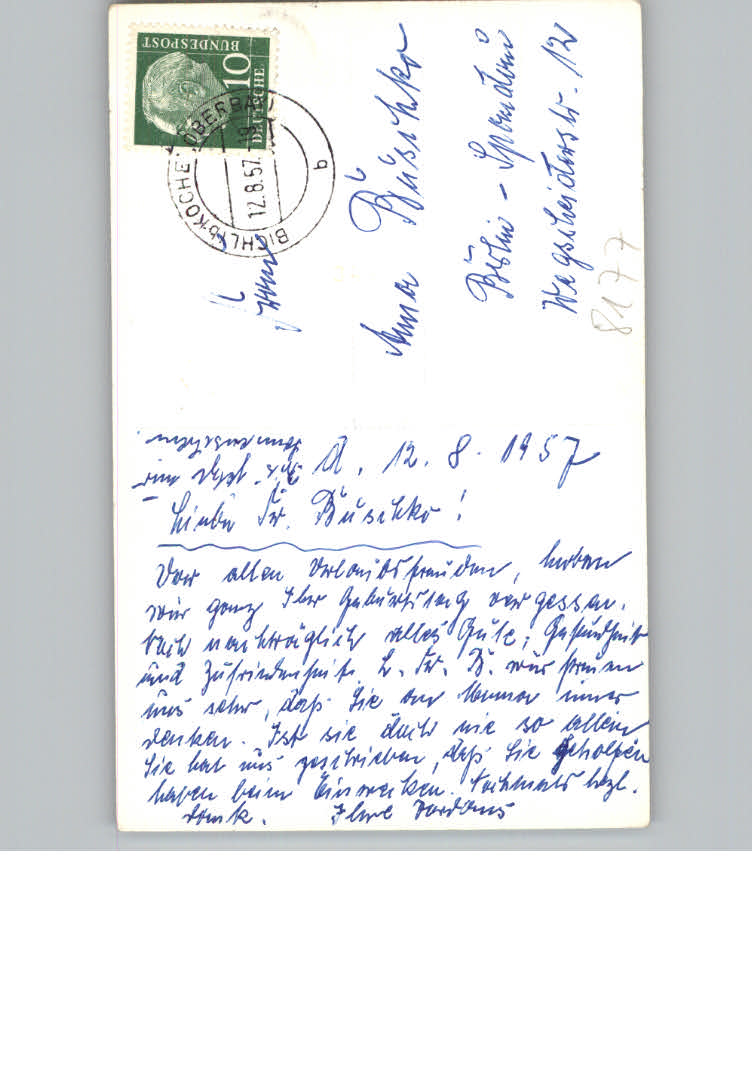 DEUTSCHE
BUNDESPOST
10
BICHL b. KOCHEL (OBERBAY)
12.8.57
b
Frau
Anna Buschko
Berlin - Spandau
Wagscheiderstr. 12
8177
d. 12. 8. 1957
Liebe Fr. Buschko!
Vor allen Urlaubsfreuden, haben
wir ganz Ihr Geburtstag vergessen.
Auch nachträglich alles Gute, Gesundheit
und Zufriedenheit. L. Fr. B. wir freuen
uns sehr, daß Sie an Mama immer
denken. Ist sie doch nie so allein
Sie hat uns geschrieben, daß Sie geholfen
haben beim Einwecken. Nochmals herzl.
Dank. Ihre